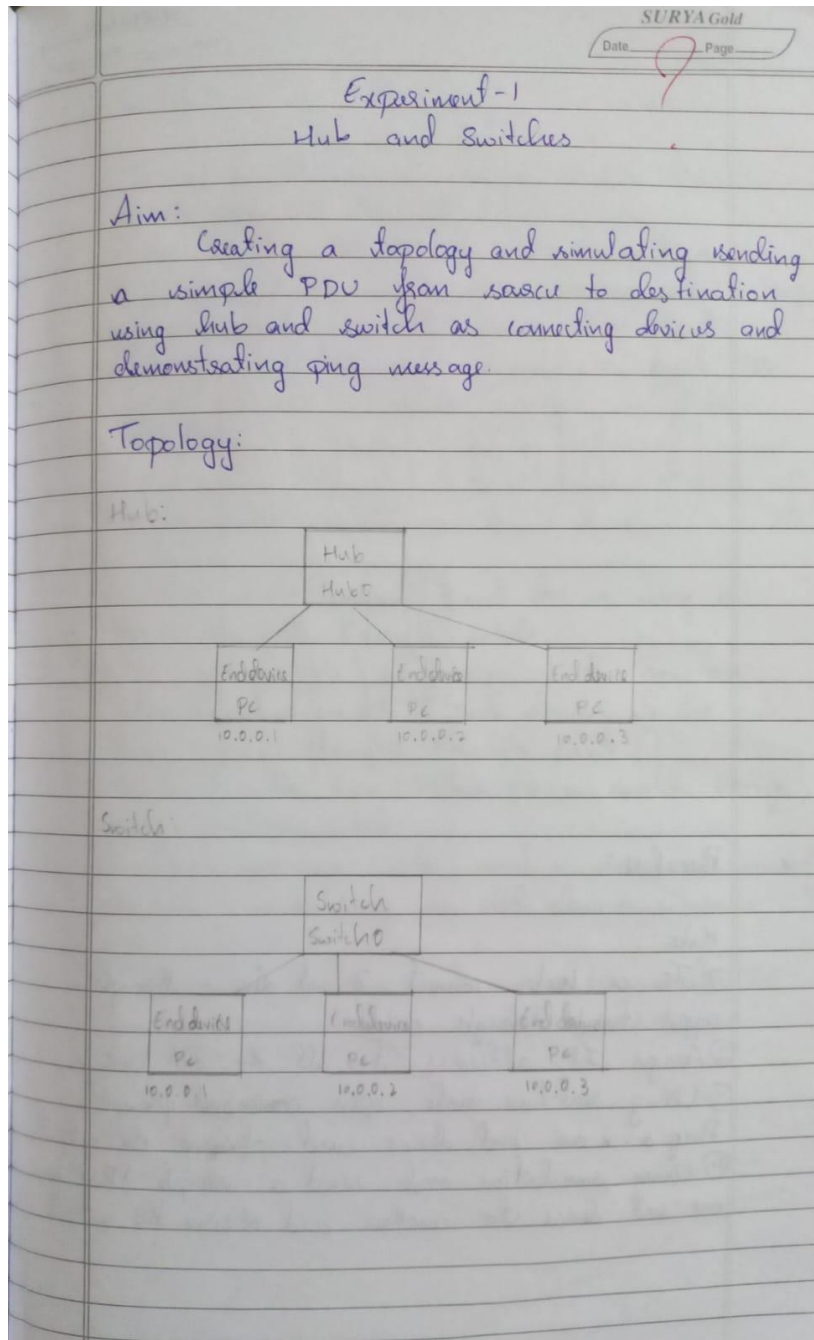 SURYA Gold
Date Page
Experiment-1
Hub and Switches
Aim:
Creating a topology and simulating sending
a simple PDU from source to destination
using hub and switch as connecting devices and
demonstrating ping message.
Topology:
Hub:
Hub
Hub0
End device End device End device
PC PC PC
10.0.0.1 10.0.0.2 10.0.0.3
Switch:
Switch
Switch0
End devices End device End device
PC PC PC
10.0.0.1 10.0.0.2 10.0.0.3